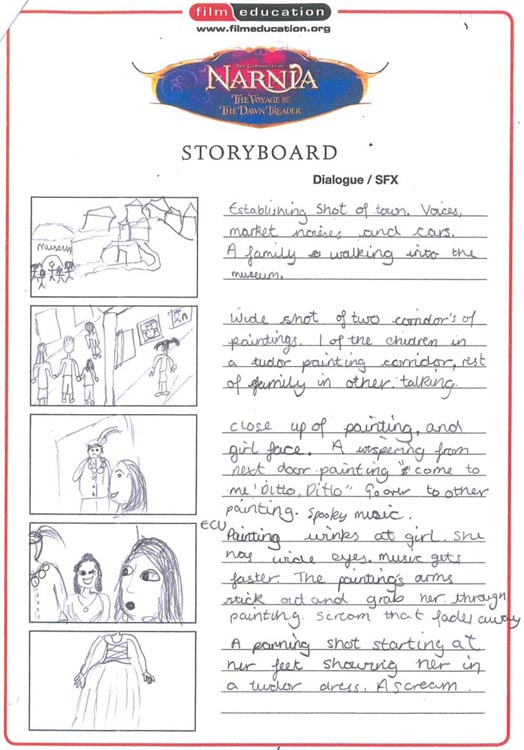 film education
www.filmeducation.org
THE CHRONICLES OF
NARNIA
THE VOYAGE OF
THE DAWN TREADER
STORYBOARD
Dialogue / SFX
museum
Establishing Shot of town. Voices,
market noises and cars.
A family walking into the
museum.
Wide shot of two corridor's of
paintings. 1 of the children in
a tudor painting corridor, rest
of family in other. talking
close up of painting, and
girl face. A wispering from
next door painting " come to
me 'Ditto, Ditto" Go over to other
painting. Spooky music.
ECU
Painting winks at girl. She
has wide eyes. music gets
faster. The painting's arms
stick out and grab her through
painting. scream that fades away
A panning shot starting at
her feet showing her in
a tudor dress. A scream.